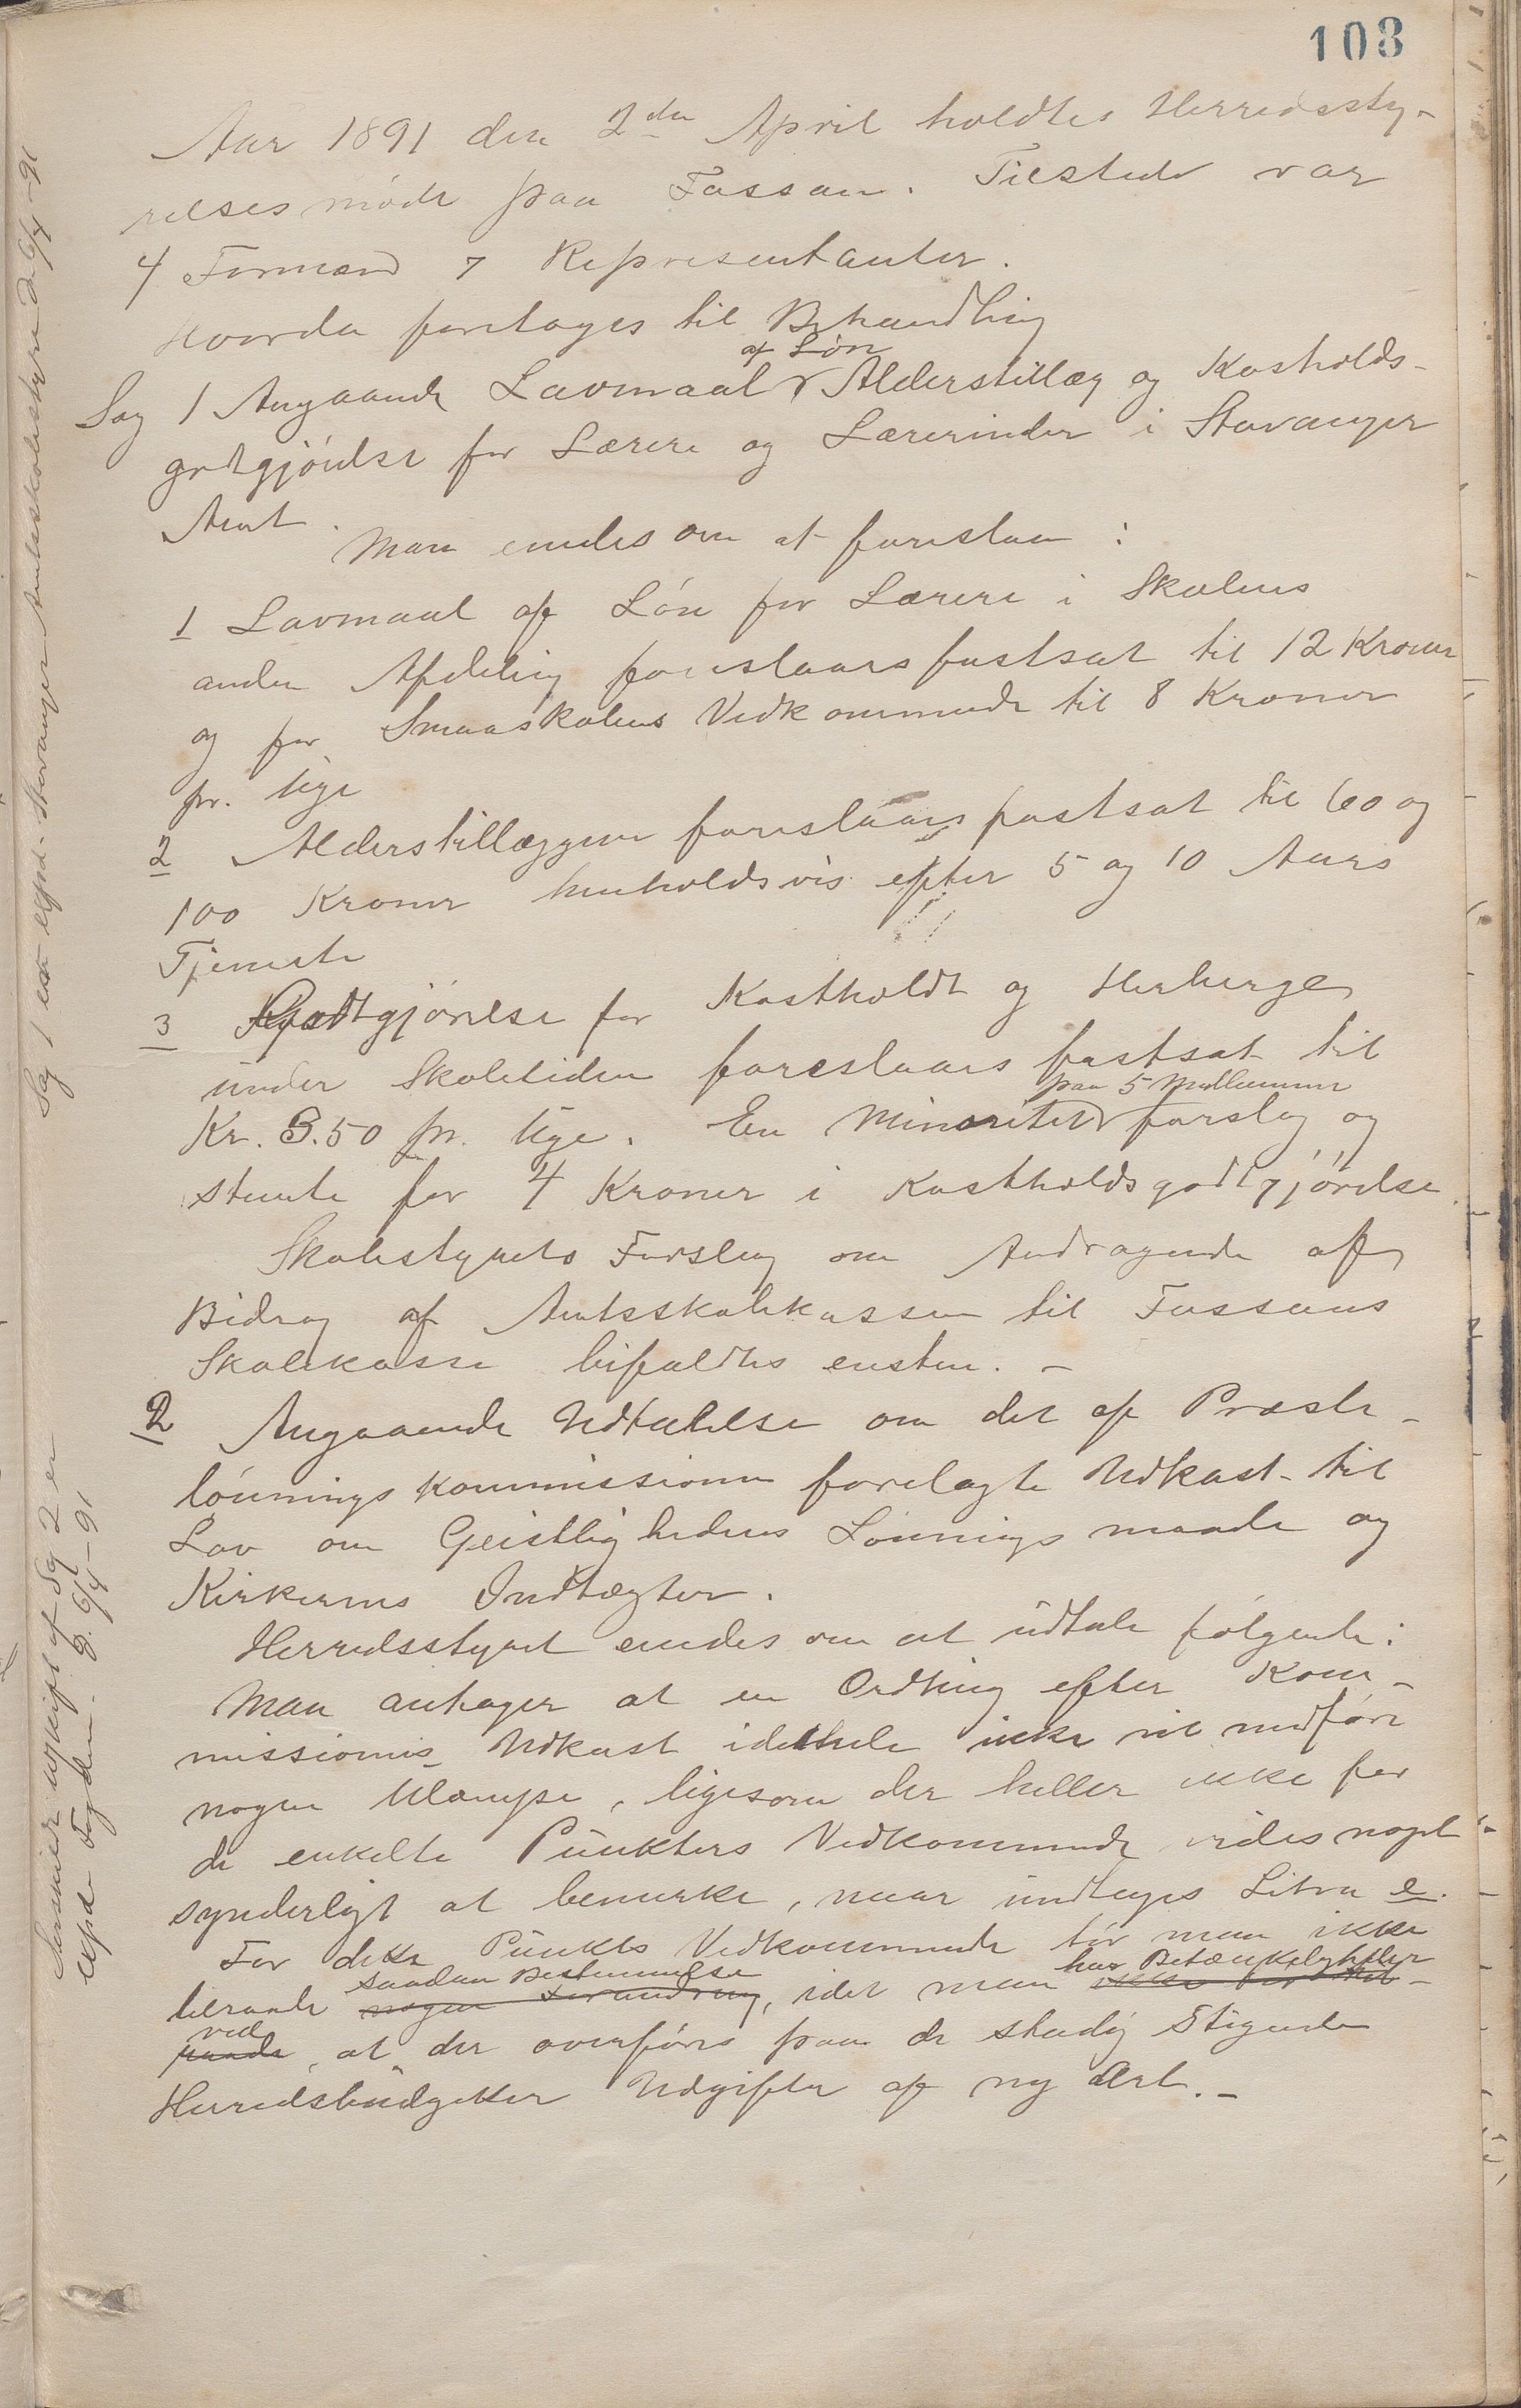 103
Aar 1891 den 2den April holdtes Herredssty-
relsesmøde paa Fossan. Tilstede var
4 Formænd 7 Representanter.
Hvorda foretoges til Behandling
Sag 1 Angaaende Lavmaal af Løn Alderstillæg og Kostholds-
godtgjørelse for Lærere og Lærerinder i Stavanger
Amt.
Man enedes om at foreslaa :
1 Lavmaal af Løn for Lærere i Skolens
anden Afdeling foreslaaes fastsat til 12 Kroner
og for Smaaskolens Vedkommende til 8 Kroner
pr. Uge
2 Alderstillæggene foreslaaes fastsat til 60 og
100 Kroner henholdsvis efter 5 og 10 Aars
Tjeneste
3 Godtgjørelse for Kostholdt og Herberge
under Skoletiden foreslaaes fastsat til
Kr. 3.50 pr. Uge. En Minoritet paa 5 Medlemmer forslog og
stemte for 4 Kroner i Kostholdsgodtgjørelse.
Skolestyrets Forslag om Andragende af
Bidrag af Amtsskolekassen til Fossans
Skolekasse bifaldtes enstem. -
2 Angaaende Udtalelse om det af Præste-
lønningskommissionen forelagte Udkast til
Lov om Geistlighedens Lønningsmaade og
Kirkernes Indtægter.
Herredsstyret enedes om at udtale følgende:
Man antager at en Ordning efter Kom-
missionens Udkast idethele ikke vil medføre
nogen Ulæmpe, ligesom der heller ikke for
de enkelte Punkters Vedkommende vides noget
synderligt at bemærke, naar undtages Litra e.
For dette Punkts Vedkommende tør man ikke
tilraade saadan Bestemmelse nogen Forandring, idet man har Betænkeligheder
ved raade, at der overføres paa de stadig Stigende
Herredsbudgetter Udgifter af ny Art. -
Sag 1 expd. Stavanger Amtsskolestyre d. 6/4-91
Udskrift af Sag 2 er
expd. Fogden d. 6/4-91